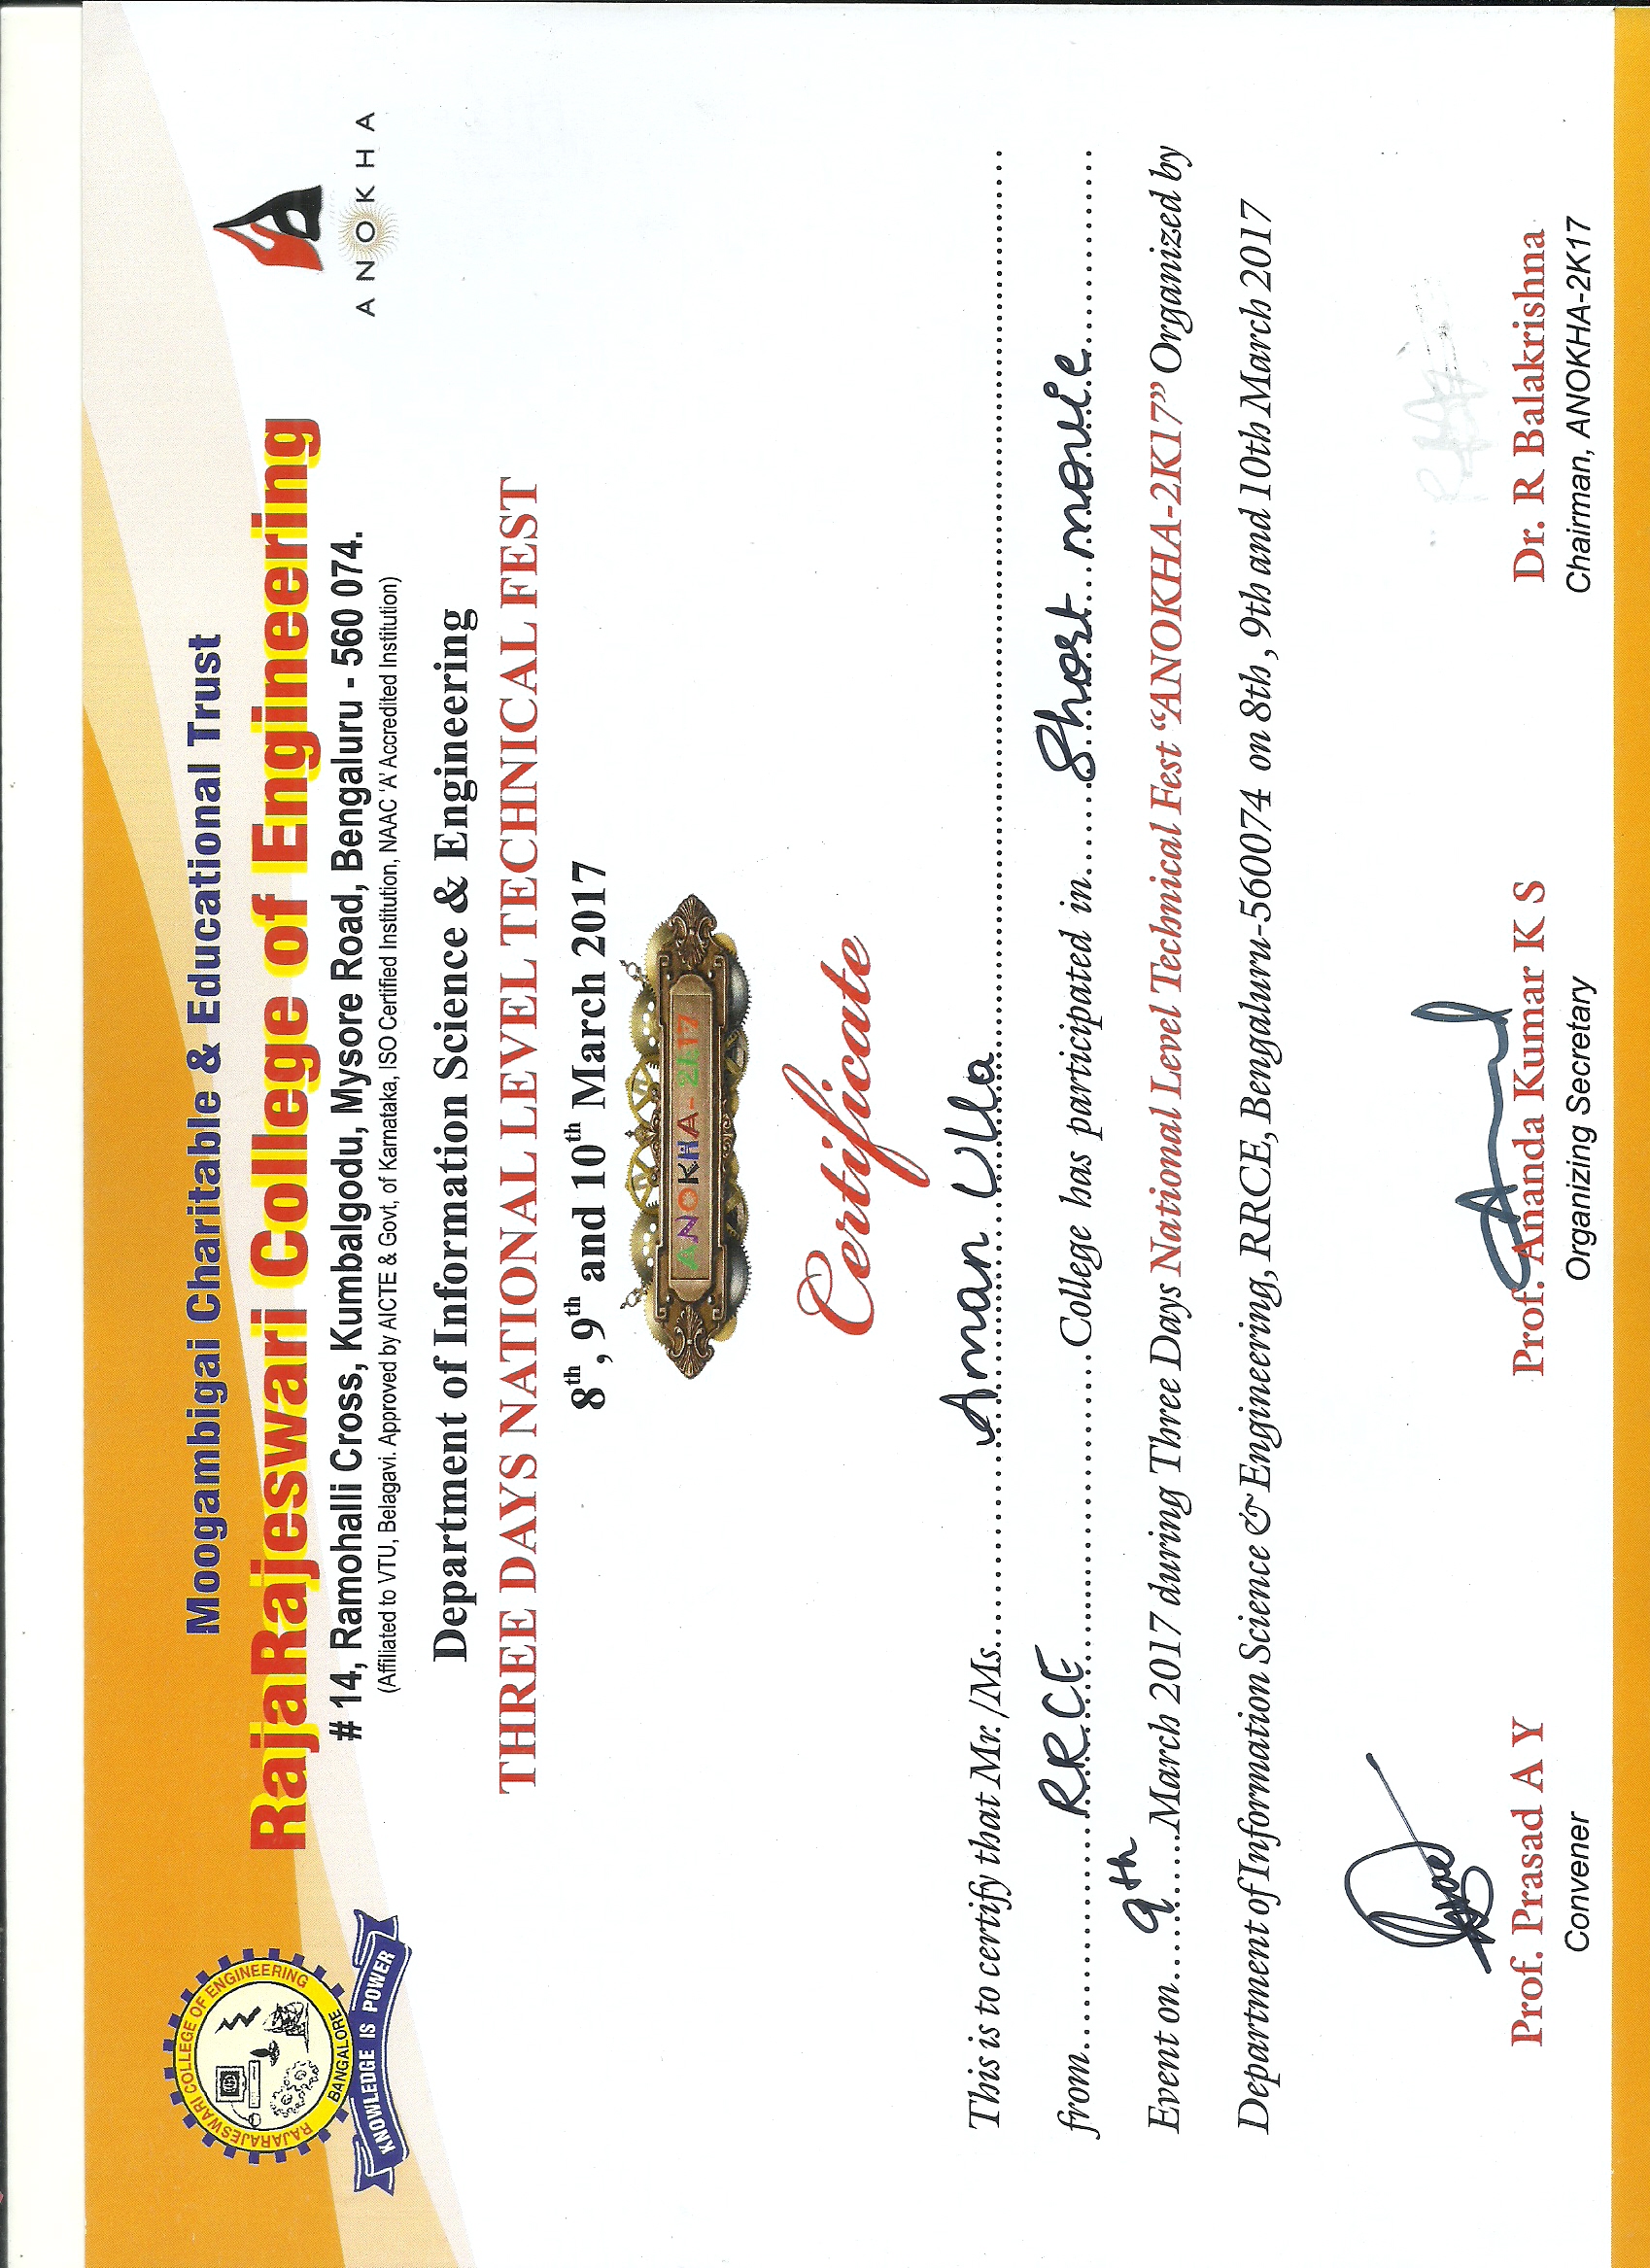 RAJARAJESWARI COLLEGE OF ENGINEERING
BANGALORE
KNOWLEDGE IS POWER
Moogambigai Charitable & Educational Trust
RajaRajeswari College of Engineering
# 14, Ramohalli Cross, Kumbalgodu, Mysore Road, Bengaluru - 560 074.
(Affiliated to VTU, Belagavi. Approved by AICTE & Govt, of Karnataka, ISO Certified Institution, NAAC 'A' Accredited Institution)
ANOKHA
Department of Information Science & Engineering
THREE DAYS NATIONAL LEVEL TECHNICAL FEST
8th, 9th and 10th March 2017
ANOKHA- 2K17
Certificate
This is to certify that Mr. /Ms. Aman Ulla
from RRCE College has participated in Short movie
Event on 9th March 2017 during Three Days National Level Technical Fest “ANOKHA-2K17” Organized by
Department of Information Science & Engineering, RRCE, Bengaluru-560074 on 8th , 9th and 10th March 2017
Prof. Prasad A Y
Convener
Prof. Ananda Kumar K S
Organizing Secretary
Dr. R Balakrishna
Chairman, ANOKHA-2K17